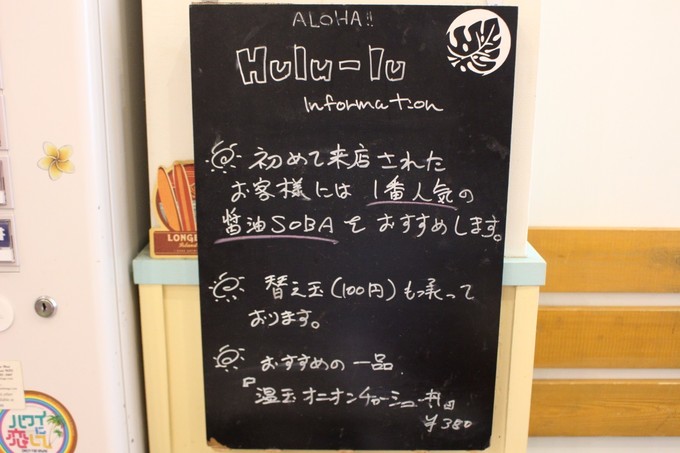 ALOHA!!
Hulu-lu
Information
初めて来店された
お客様には1番人気の
醤油SOBAをおすすめします。
替え玉(100円)も承って
おります。
おすすめの一品
『温玉オニオンチャーシュー
¥380
LONGB
ハワイに
恋して!